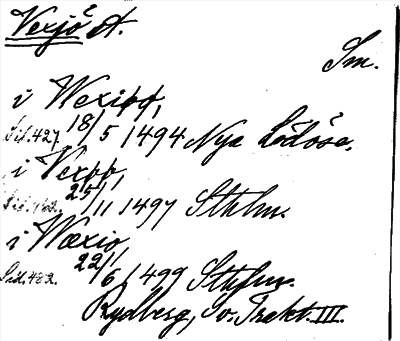 Vexjö st.
Sm.
i Wexiøø,
Sid. 427. 18/5 1494 Nya Lödöse.
i Vexøø,
25/11 1497 Sthlm.
i Wæxio,
Sid. 482. 22/6 1499 Sthlm.
Rydberg, Sv. Trakt. III.